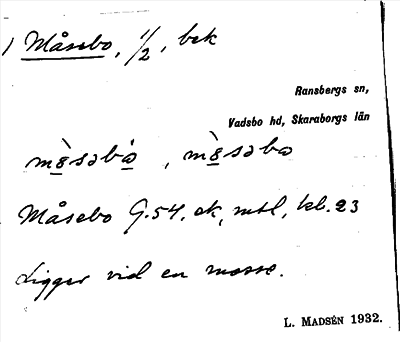 ) Måsebo, 1/2, bek
Ransbergs sn,
Vadsbo hd, Skaraborgs län
Måsebo G.54. ek, mtl, kb. 23
Ligger vid en mosse.
L. MADSÉN 1932.